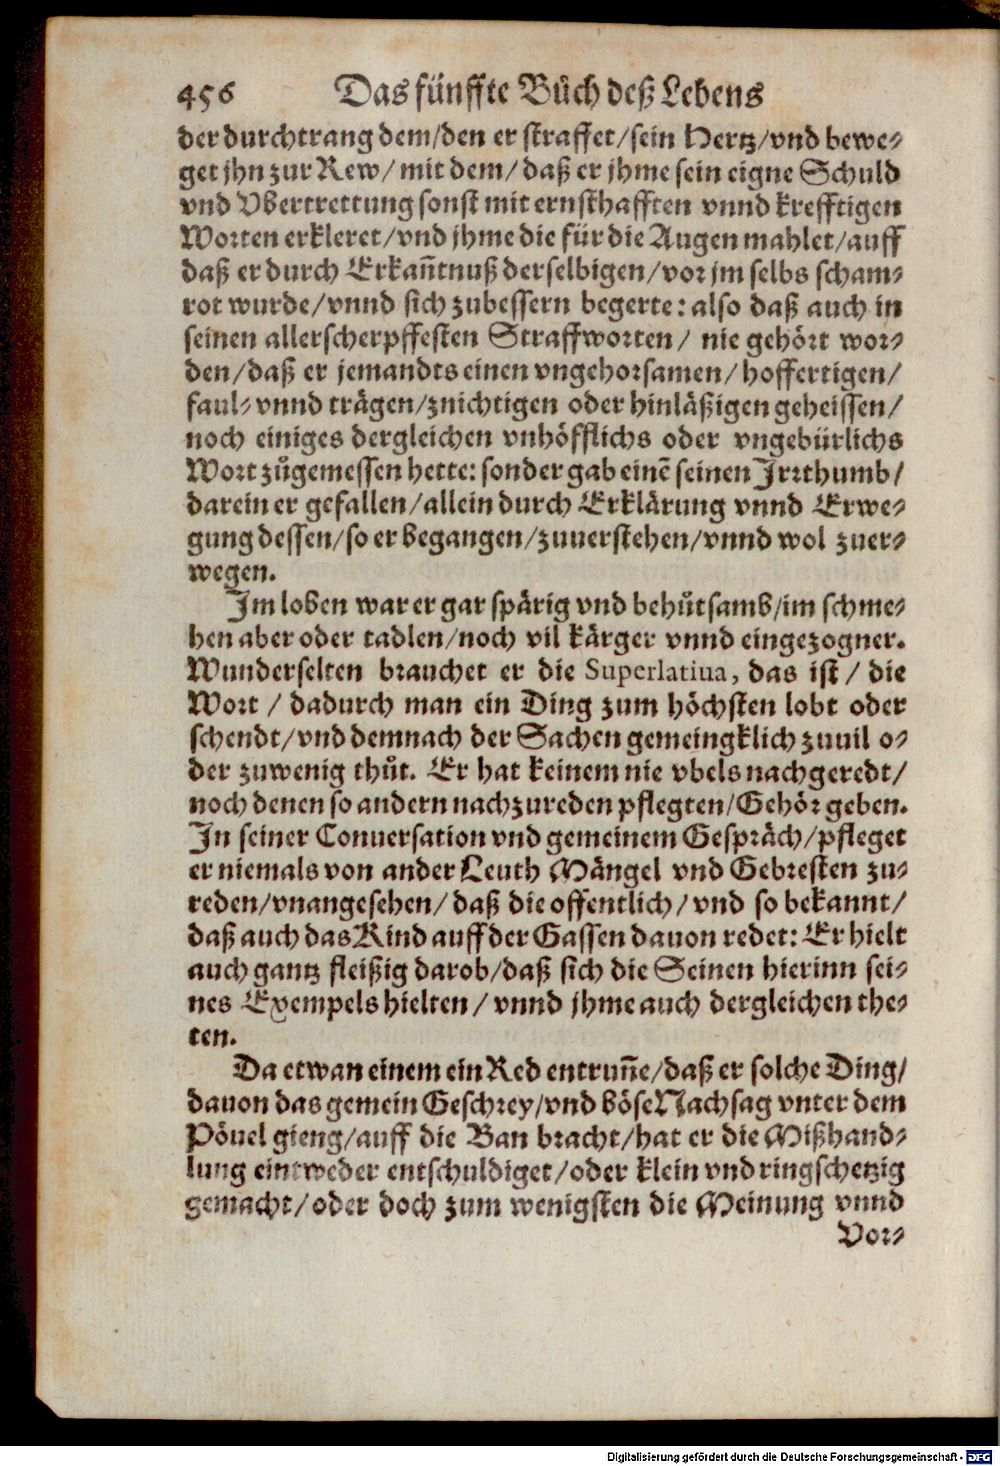 456 Das fünffte Bůch deß Lebens
der durchtrang dem/den er straffet/sein Hertz/vnd bewe-
get jhn zur Rew/ mit dem/ daß er jhme sein eigne Schuld
vnd Vbertrettung sonst mit ernsthafften vnnd krefftigen
Worten erkleret/vnd jhme die für die Augen mahlet/auff
daß er durch Erkañtnuß derselbigen/vor jm selbs scham-
rot wurde/vnnd sich zubessern begerte: also daß auch in
seinen allerscherpffesten Straffworten/ nie gehört wor-
den/daß er jemandts einen vngehorsamen/ hoffertigen/
faul-vnnd trägen/znichtigen oder hinläßigen geheissen/
noch einiges dergleichen vnhöfflichs oder vngebürlichs
Wort zůgemessen hette: sonder gab einē seinen Jrrthumb/
darein er gefallen/allein durch Erklärung vnnd Erwe-
gung dessen/so er begangen/zuuerstehen/vnnd wol zuer-
wegen.
Jm loben war er gar spärig vnd behůtsamb/im schme-
hen aber oder tadlen/noch vil kärger vnnd eingezogner.
Wunderselten brauchet er die Superlatiua, das ist/ die
Wort / dadurch man ein Ding zum höchsten lobt oder
schendt/vnd demnach der Sachen gemeingklich zuuil o-
der zuwenig thůt. Er hat keinem nie vbels nachgeredt/
noch denen so andern nachzureden pflegten/Gehör geben.
Jn seiner Conuersation vnd gemeinem Gespräch/pfleget
er niemals von ander Leuth Mängel vnd Gebresten zu-
reden/vnangesehen/ daß die offentlich/vnd so bekannt/
daß auch das Kind auff der Gassen dauon redet: Er hielt
auch gantz fleißig darob/daß sich die Seinen hierinn sei-
nes Exempels hielten/ vnnd jhme auch dergleichen the-
ten.
Da etwan einem ein Red entruñe/daß er solche Ding/
dauon das gemein Geschrey/vnd böse Nachsag vnter dem
Pöuel gieng/auff die Ban bracht/hat er die Mißhand-
lung eintweder entschuldiget/oder klein vnd ringschetzig
gemacht/oder doch zum wenigsten die Meinung vnnd
Vor-
Digitalisierung gefördert durch die Deutsche Forschungsgemeinschaft - DFG